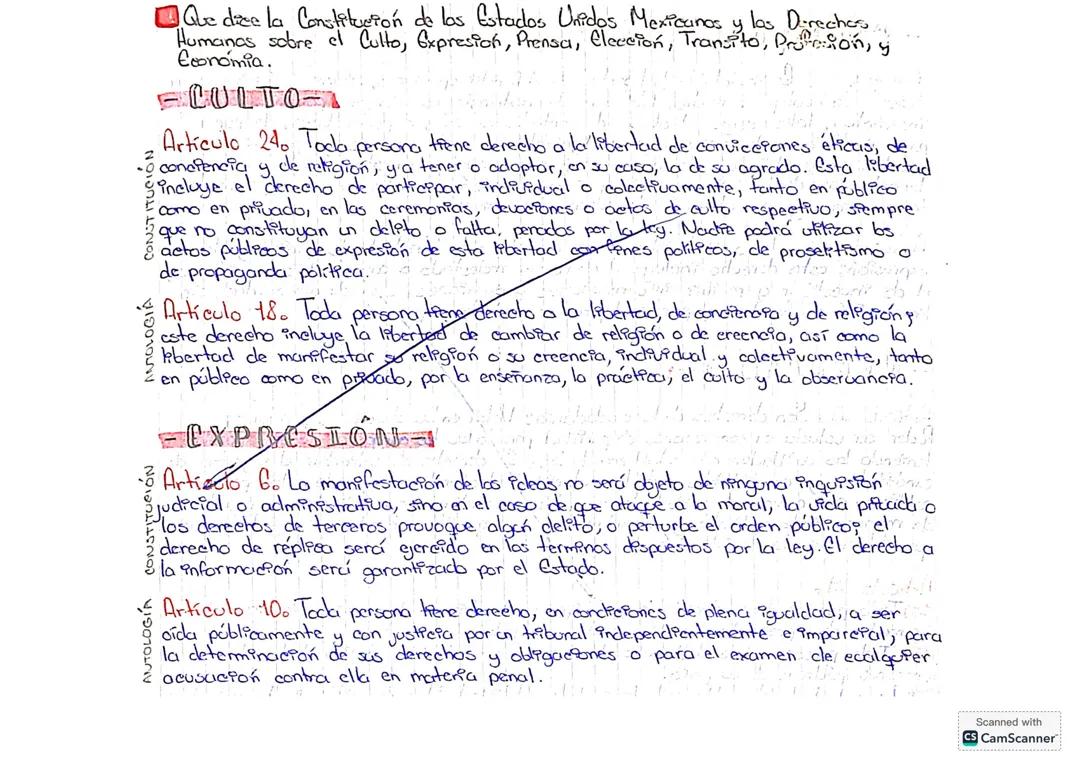 Que dice la Constitución de los Estados Unidos Mexicanos y los Derechos
Humanos sobre el Culto, Expresión, Prensa, Elección, Transito, Profesión, y
Económia.
-CULTO-
Artículo 24. Toda persona tiene derecho a la libertad de convicciones éticas, de
conciencia y de religión, y a tener o adoptar, en su caso, la de su agrado. Esta libertad
incluye el derecho de participar, individual o colectivamente, tanto en público
como en privado, en las ceremonias, devociones o actos de culto respectivo, siempre
que no constituyan un delito o falta, penados por la ley. Nadie podrá utilizar los
actos públicos de expresión de esta libertad con fines políticos, de proselitismo o
de propaganda política.
CONSTITUCIÓN
Artículo 18. Toda persona tiene derecho a la libertad, de conciencia y de religión;
este derecho incluye la libertad de cambiar de religión o de creencia, así como la
libertad de manifestar su religión o su creencia, individual y colectivamente, tanto
en público como en privado, por la enseñanza, la práctica, el culto y la observancia.
ANOLOGÍA
-EXPRESIÓN-
Artículo 6. La manifestación de las ideas no será objeto de ninguna inquisisión
judicial o administrativa, sino en el caso de que ataque a la moral, la vida privada o
los derechos de terceros provoque algún delito, o perturbe el orden público; el
derecho de réplica será ejercido en los terminos dispuestos por la ley. El derecho a
la información será garantizado por el Estado.
CONSTITUCIÓN
Artículo 10. Toda persona tiene derecho, en condiciones de plena igualdad, a ser
oída públicamente y con justicia por un tribunal independientemente e imparcial, para
la determinación de sus derechos y obligaciones o para el examen de cualquier
acusación contra ella en materia penal.
AUTOLOGÍA
Scanned with
CS CamScanner